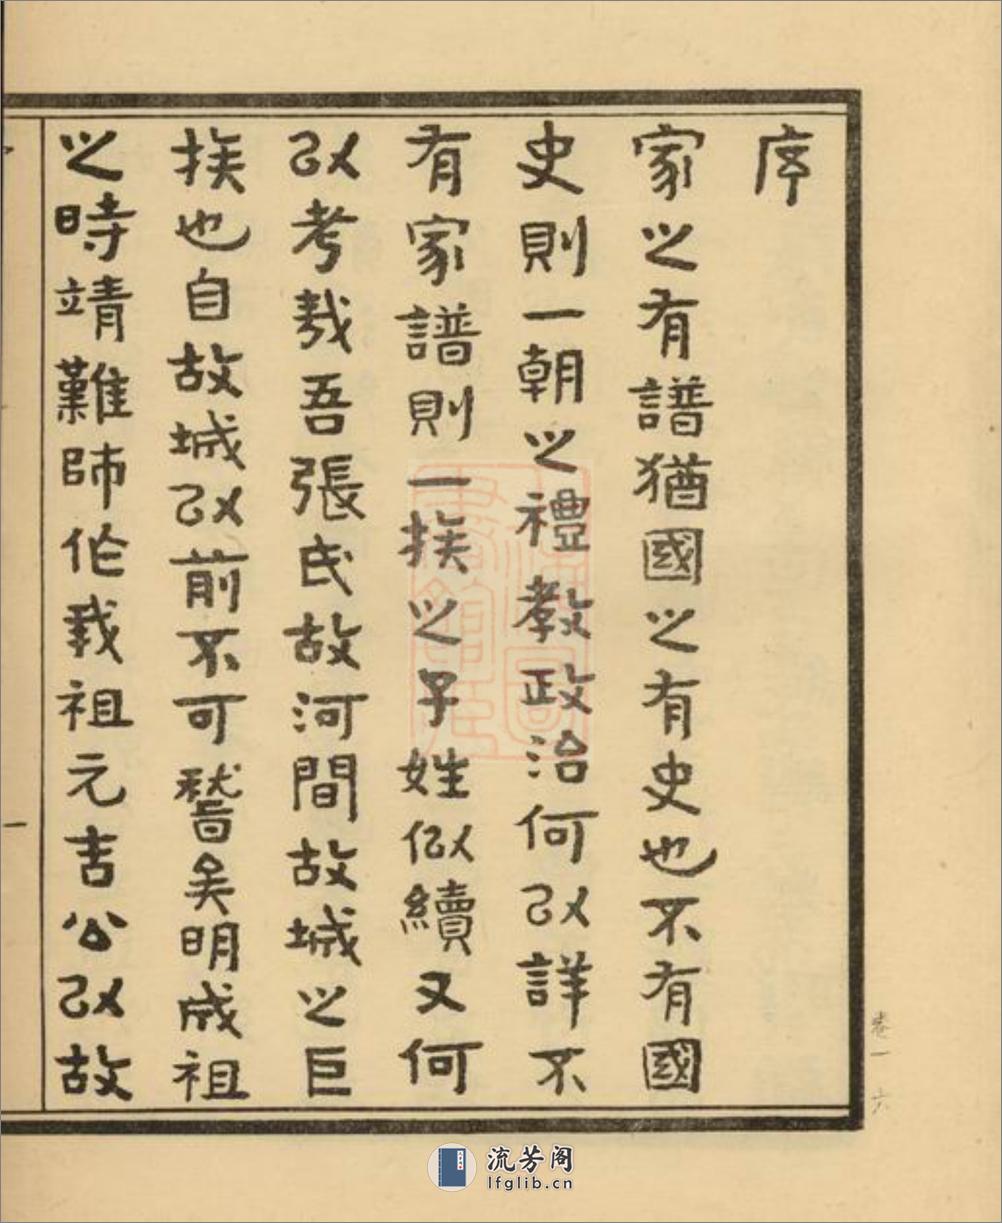 序
家之有譜猶國之有史也不有國
史則一朝之禮教政治何以詳不
有家譜則一族之子姓似續又何
以考哉吾張氏故河間故城之巨
族也自故城以前不可稽矣明成祖
之時靖難師作我祖元吉公以故
一
卷一 六
流芳阁
lfglib.cn